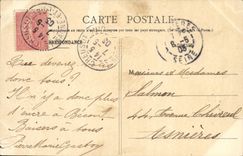 CARTE POSTALE
CORRESPONDANCE
SEINE
Que devenez
donc tous?
Il n'y a donc plus
d'encre à
Baisers à tous
Messieurs et Mesdames
Salmon
44 Avenue Chevreul
Asnières